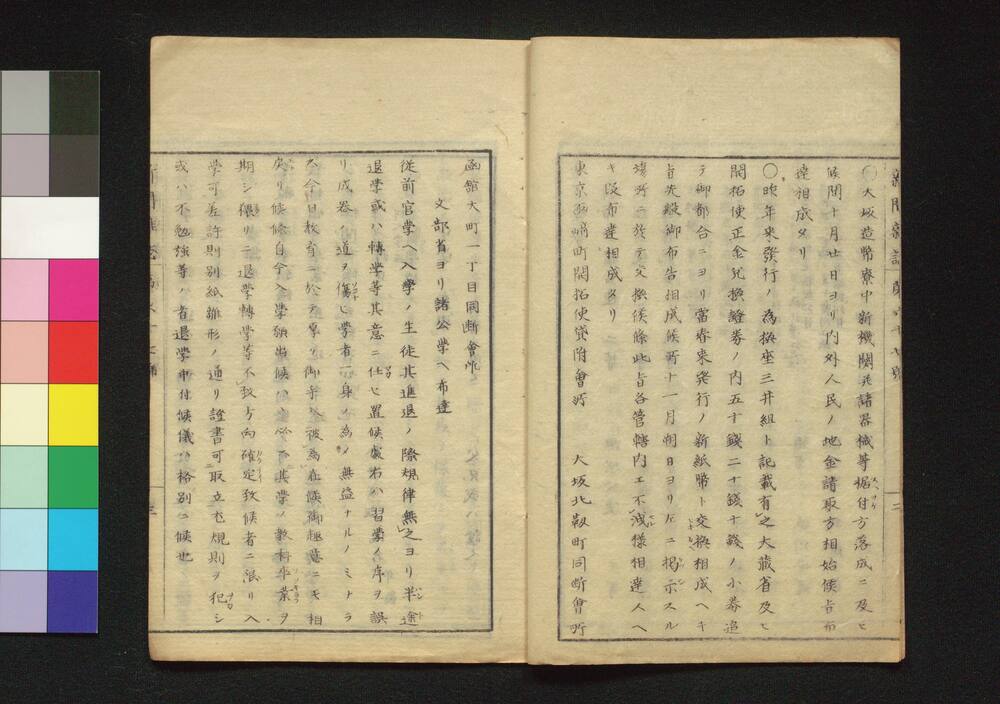 新聞雑誌 第六十七號
〇大坂造幣寮中新機關並諸器械等据付方落成ニ及ヒ
候間十月廿日ヨリ内外人民ノ地金請取方相始候旨布
達相成タリ
〇昨年来發行ノ為換座三井組ト記載有之大蔵省及ヒ
開拓使正金兌換證券ノ内五十錢二十錢十錢ノ小券追
テ御都合ニヨリ當春来発行ノ新紙幣ト交換相成ヘキ
旨先般御布告相成候所十一月朔日ヨリ左ニ掲示スル
場所ニ於テ交換候條此旨各管轄内エ不洩様相達人ヘ
キ段布達相成タリ
東京 町開拓使貸附會所 大坂北 町同断會所
函館大町一丁目同断會所
文部省ヨリ諸公学ヘ布達
従前官学ヘ入學ノ生徒其進退ノ際規律無之ヨリ半途
退学或ハ轉学等其意ニ任セ置候處右ハ習學ノ序ヲ誤
リ成器ノ道ヲ傷ヒ学者一身ノ為メ無益ナルノミナラ
ス今日教育ニ於テ厚ク御手ヲ被為在候御趣意ニモ相
戻リ候條自今入学願出候 必ス其学ノ教科卒業ヲ
期シ猥リニ退学轉学等不致方向確定致候者ニ限リ入
学可差許則別紙雛形ノ通リ證書可取立尤規則ヲ犯シ
或ハ不勉強等ノ者退学申付候儀ハ格別ニ候也